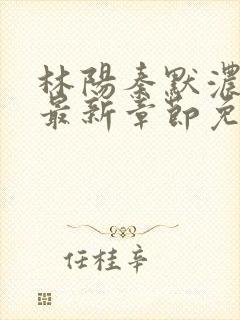 林陽秦默濃
最新章節免
任桂辛